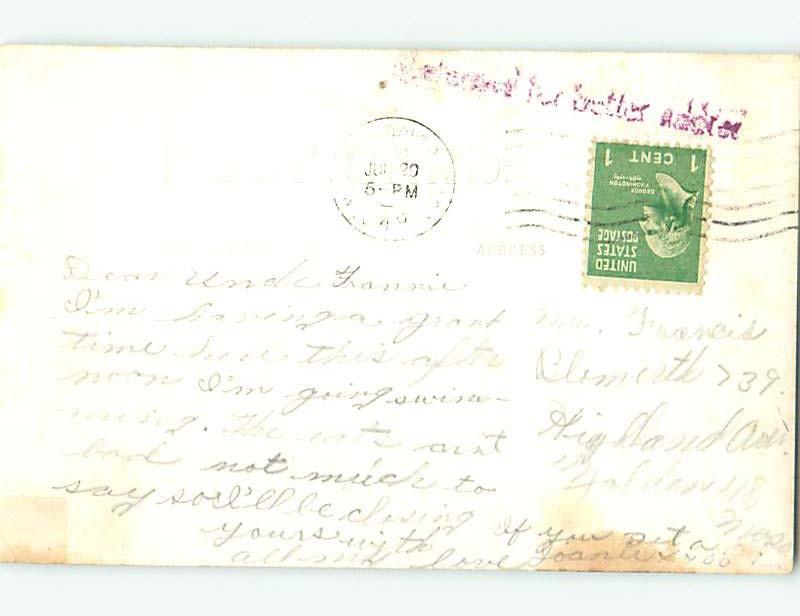 Returned for better address
JUL 20
5 - PM
1 CENT 1
GEORGE WASHINGTON
UNITED
STATES
POSTAGE
ADDRESS
Dear Uncle Fannie
I'm having a grant
time here this after
noon I'm going swim-
ming. The eats ain't
bad not much to
say so I'll be closing
yours with
all my love Joanie xxoo
If you get a
Mr. Francis
739
Highland Ave.
Malden 48
Mass